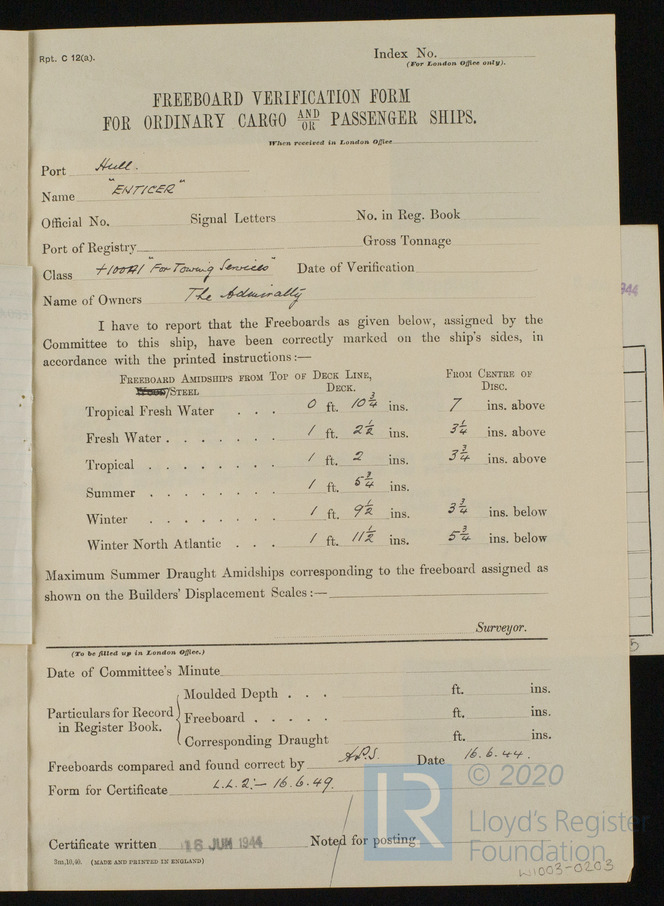 Rpt. C 12(a).
Index No.
(For London Office only).
FREEBOARD VERIFICATION FORM
FOR ORDINARY CARGO AND/OR PASSENGER SHIPS.
When received in London Office
Port Hull.
Name "ENTICER"
Official No. Signal Letters No. in Reg. Book
Port of Registry Gross Tonnage
Class +100A1 "For Towing Services" Date of Verification
Name of Owners The Admiralty
I have to report that the Freeboards as given below, assigned by the
Committee to this ship, have been correctly marked on the ship's sides, in
accordance with the printed instructions:—
Freeboard Amidships from Top of Deck Line, From Centre of
Wood/Steel Deck. Disc.
Tropical Fresh Water . . . 0 ft. 10 3/4 ins. 7 ins. above
Fresh Water . . . . . . 1 ft. 2 1/2 ins. 3 1/4 ins. above
Tropical . . . . . . . 1 ft. 2 ins. 3 3/4 ins. above
Summer . . . . . . . 1 ft. 5 3/4 ins.
Winter . . . . . . . 1 ft. 9 1/2 ins. 3 3/4 ins. below
Winter North Atlantic . . . 1 ft. 11 1/2 ins. 5 3/4 ins. below
Maximum Summer Draught Amidships corresponding to the freeboard assigned as
shown on the Builders' Displacement Scales:—
Surveyor.
(To be filled up in London Office.)
Date of Committee's Minute
Particulars for Record in Register Book.
Moulded Depth . . . ft. ins.
Freeboard . . . . . ft. ins.
Corresponding Draught ft. ins.
Freeboards compared and found correct by Date 16.6.44.
Form for Certificate L.L.2:— 16.6.49.
Certificate written 16 JUN 1944 Noted for posting
3m,10,40. (MADE AND PRINTED IN ENGLAND)
LR
© 2020
Lloyd's Register
Foundation
W1003-0203
944
5